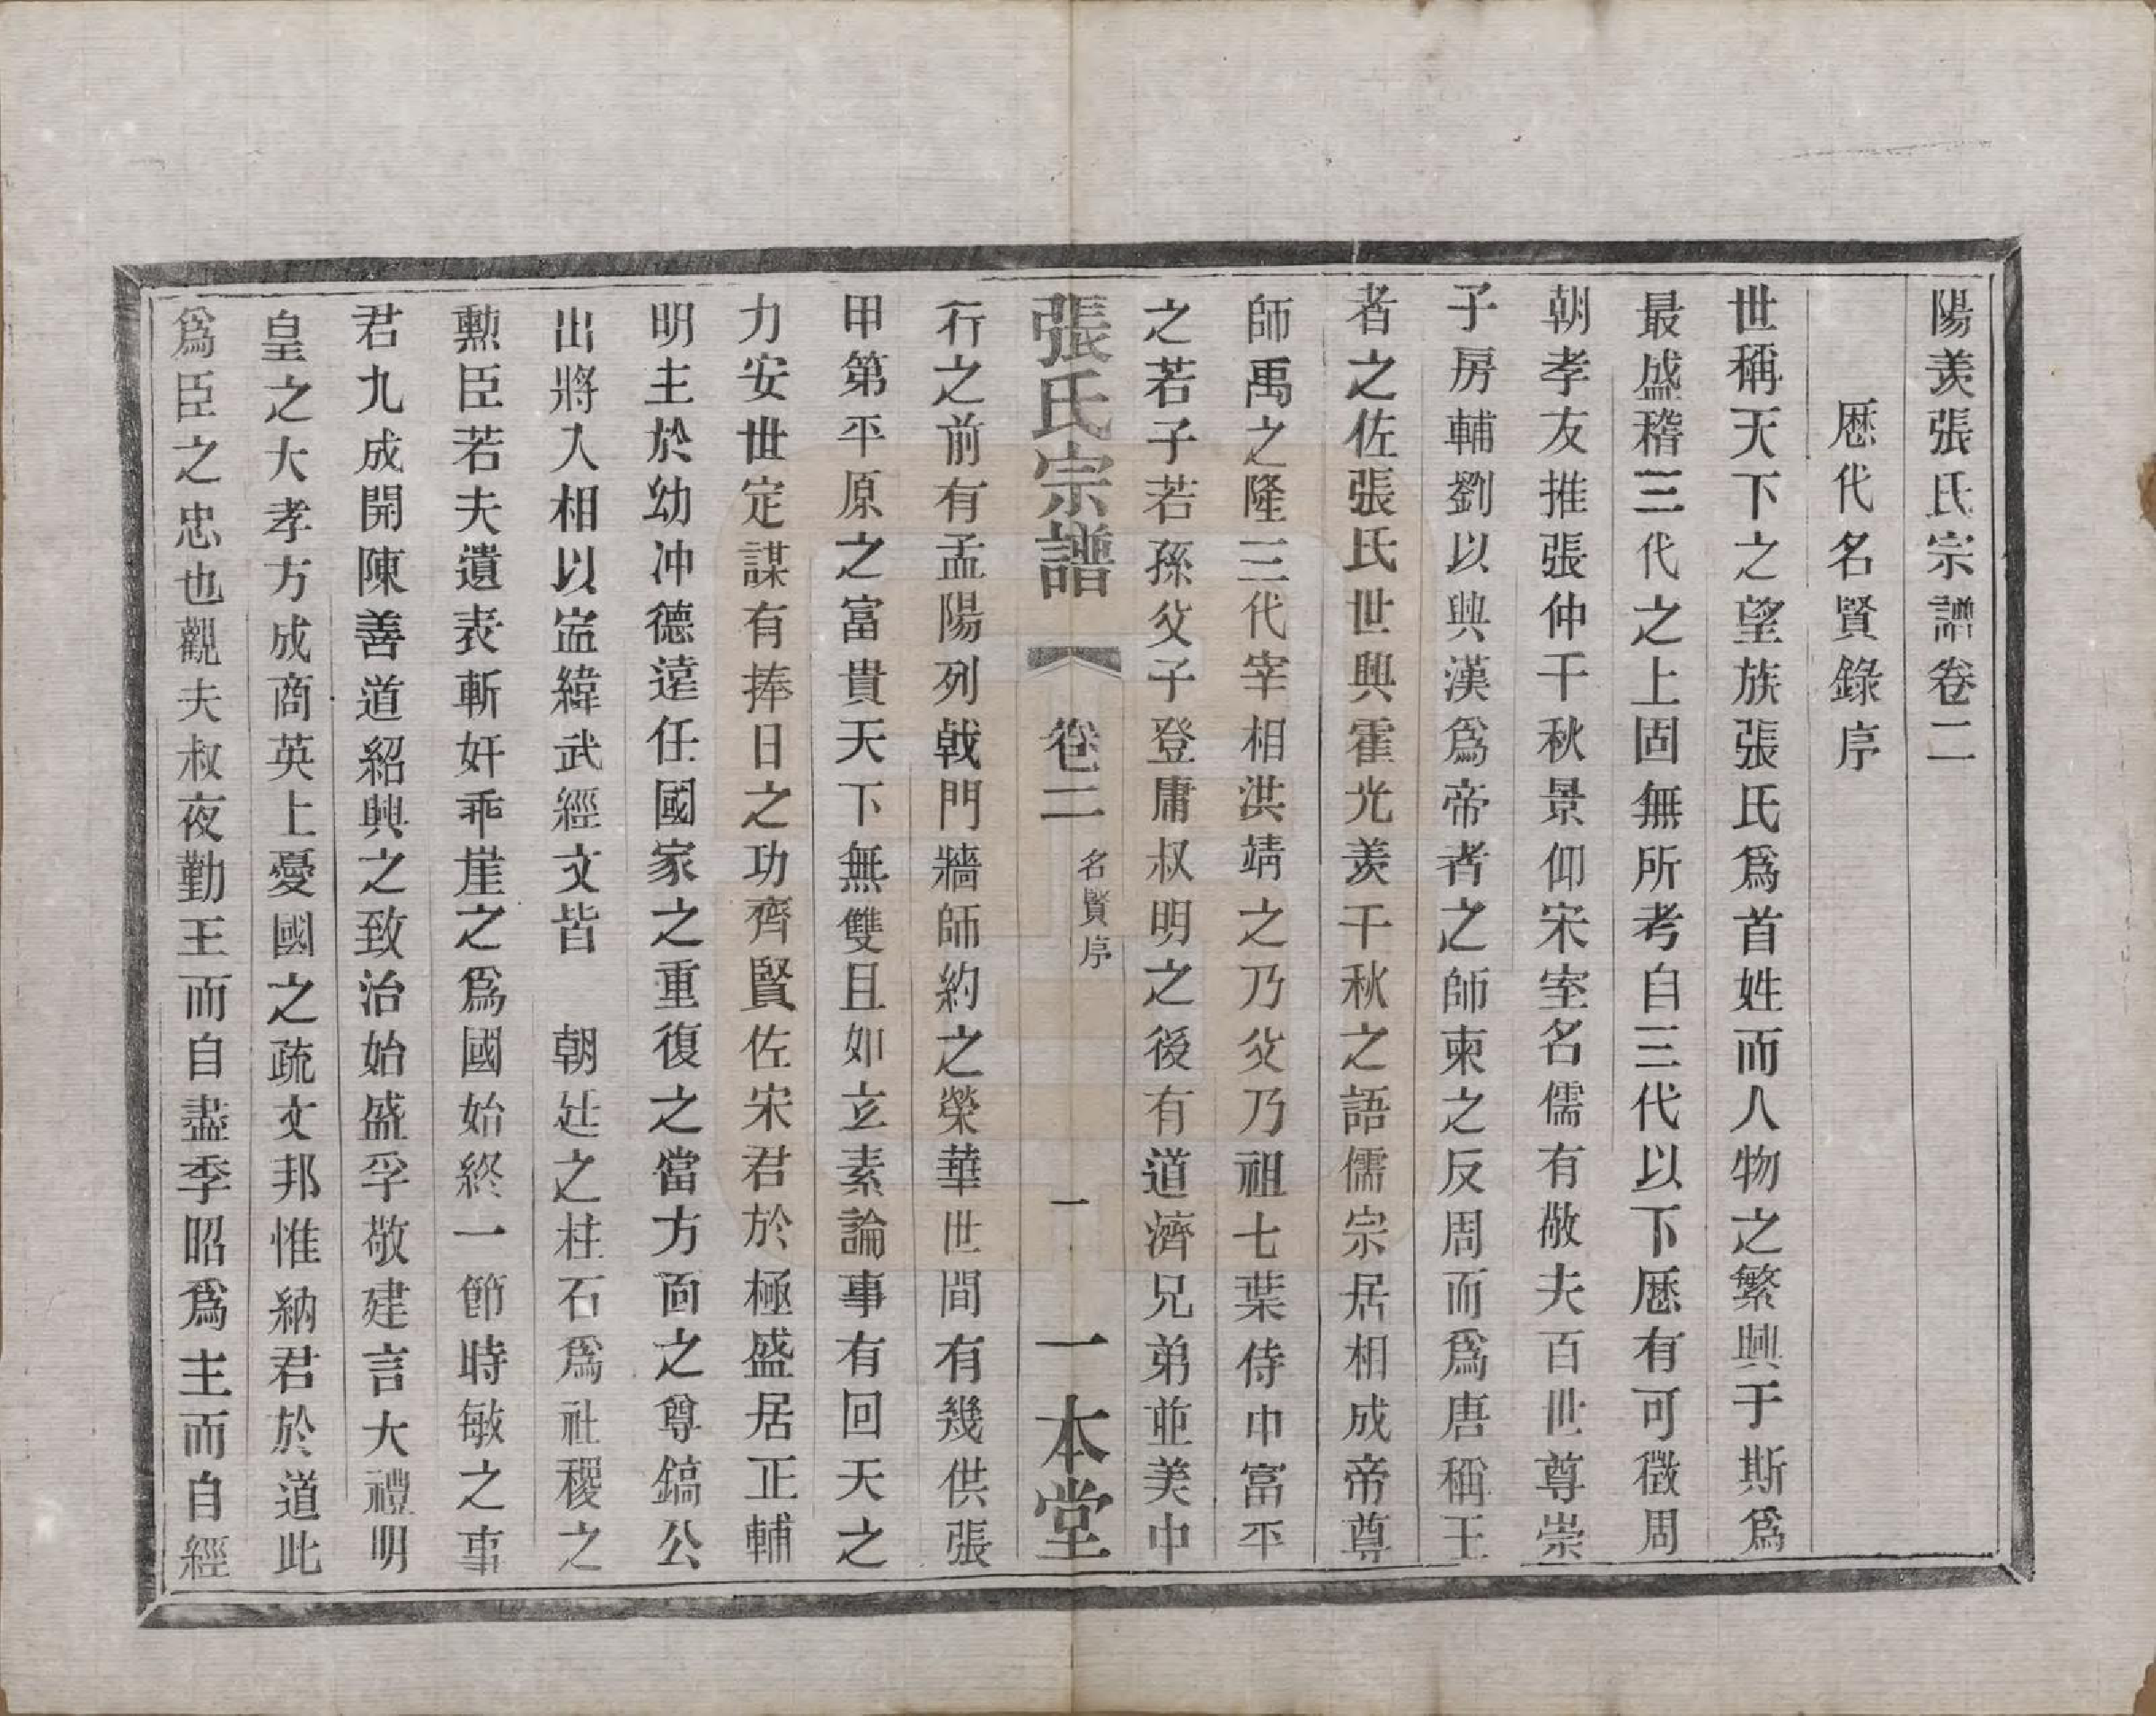 陽羨張氏宗譜卷二
歷代名賢錄序
世稱天下之望族張氏爲首姓而人物之繁興于斯爲
最盛稽三代之上固無所考自三代以下歷有可徵周
朝孝友推張仲千秋景仰宋室名儒有敬夫百世尊崇
子房輔劉以興漢爲帝者之師柬之反周而爲唐稱王
者之佐張氏世興霍光羨千秋之語儒宗居相成帝尊
師禹之隆三代宰相洪靖之乃父乃祖七葉侍中富平
之若子若孫父子登庸叔明之後有道濟兄弟並美中
張氏宗譜 卷二 名賢序 一 一本堂
行之前有孟陽列戟門牆師約之榮華世間有幾供張
甲第平原之富貴天下無雙且如玄素論事有回天之
力安世定謀有捧日之功齊賢佐宋君於極盛居正輔
明主於幼冲德遠任國家之重復之當方面之尊鎬公
出將入相以宏緯武經文皆 朝廷之柱石爲社稷之
勳臣若夫遺表斬奸乖崖之爲國始終一節時敏之事
君九成開陳善道紹興之致治始盛孚敬建言大禮明
皇之大孝方成商英上憂國之疏文邦惟納君於道此
爲臣之忠也觀夫叔夜勤王而自盡季昭爲主而自經